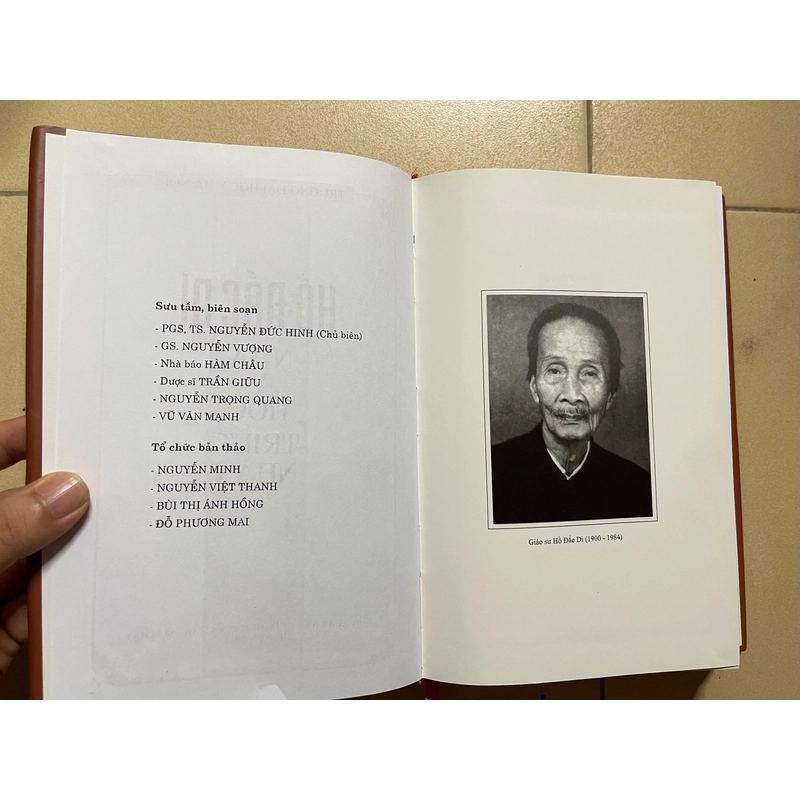 Sưu tầm, biên soạn
- PGS, TS. NGUYỄN ĐỨC HINH (Chủ biên)
- GS. NGUYỄN VƯỢNG
- Nhà báo HÀM CHÂU
- Dược sĩ TRẦN GIỮU
- NGUYỄN TRỌNG QUANG
- VŨ VĂN MẠNH
Tổ chức bản thảo
- NGUYỄN MINH
- NGUYỄN VIỆT THANH
- BÙI THỊ ÁNH HỒNG
- ĐỖ PHƯƠNG MAI
Giáo sư Hồ Đắc Di (1900 - 1984)